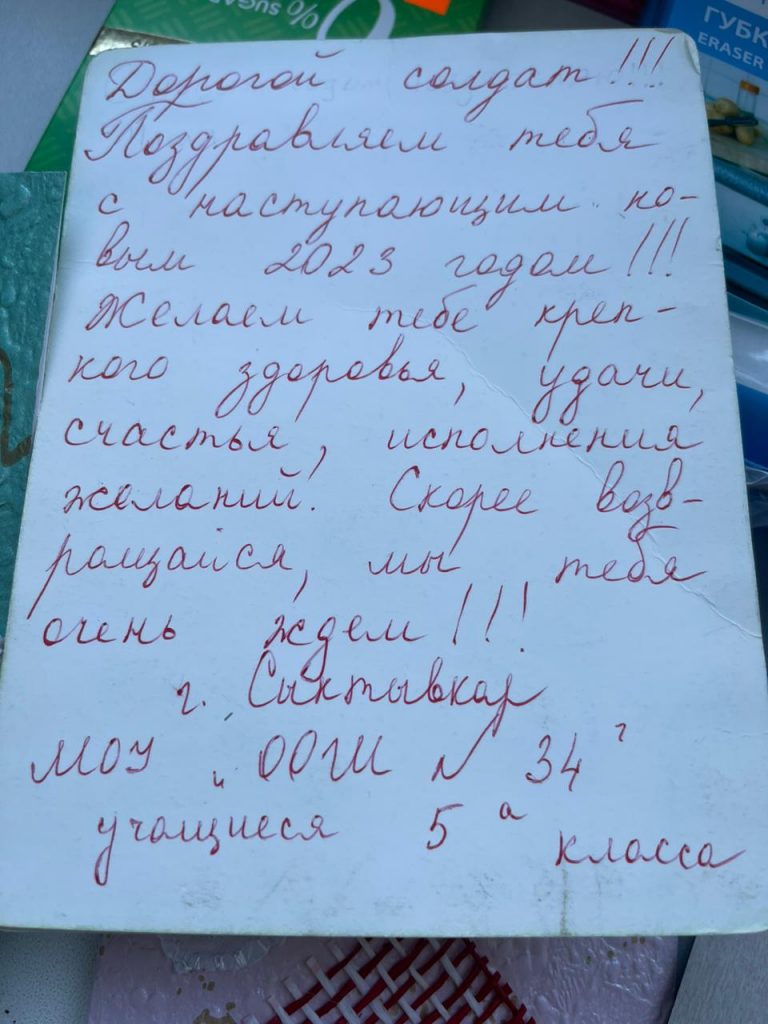 % SUGAR
ГУБК
ERASER
Дорогой солдат!!!
Поздравляем тебя
с наступающим но-
вым 2023 годом!!!
Желаем тебе креп-
кого здоровья, удачи,
счастья, исполнения
желаний. Скорее возв-
ращайся, мы тебя
очень ждем!!!
г. Сыктывкар
МОУ „ООШ № 34"
учащиеся 5 а класса